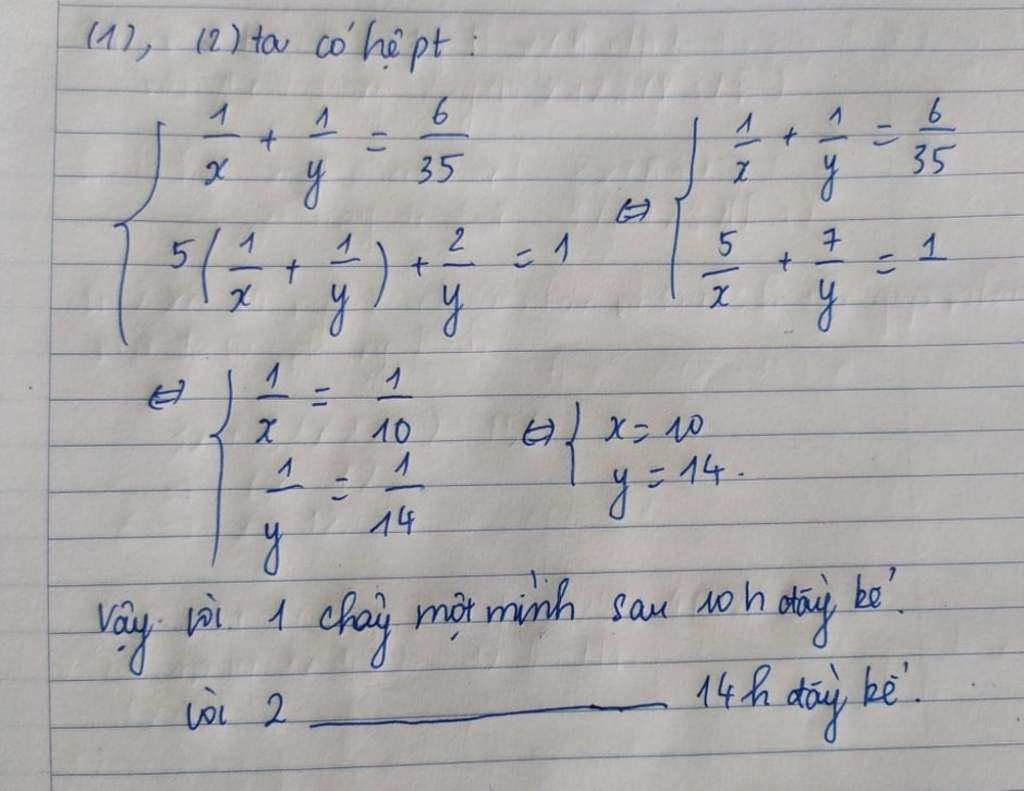 (1), (2) ta có hệ pt :
{ 1/x + 1/y = 6/35 ⇔ { 1/x + 1/y = 6/35
5(1/x + 1/y) + 2/y = 1 5/x + 7/y = 1
⇔ { 1/x = 1/10 ⇔ { x = 10
1/y = 1/14 y = 14.
Vậy vòi 1 chảy một mình sau 10h đầy bể.
vòi 2 ———— 14h đầy bể.